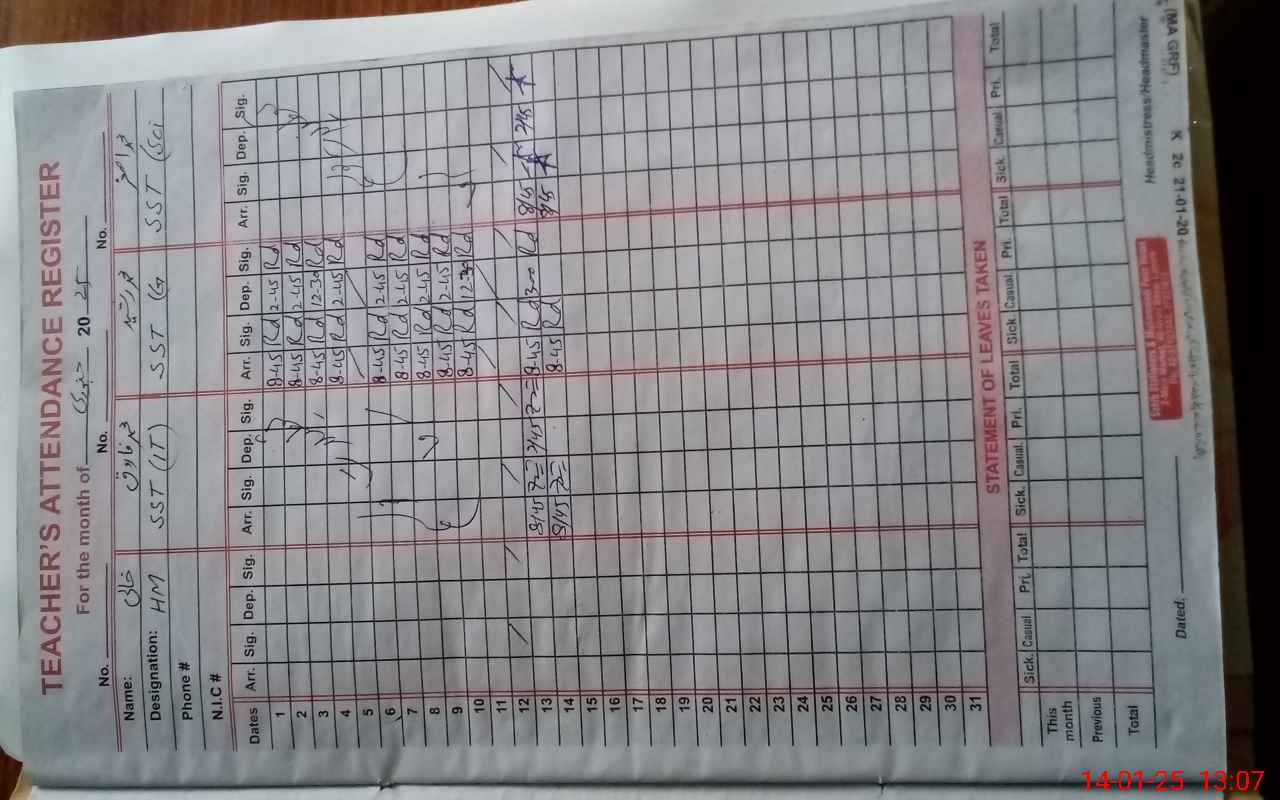 TEACHER'S ATTENDANCE REGISTER
For the month of جنوری 20 25
No. No. No.
Name: خالی محمد فاروق محمد راشد
Designation: HM SST (IT) SST (G SST (Sci
Phone #
N.I.C #
Dates Arr. Sig. Dep. Sig. Arr. Sig. Dep. Sig. Arr. Sig. Dep. Sig. Arr. Sig. Dep. Sig.
1 8-45 Rd 2-45 Rd
2 8-45 Rd 2-45 Rd
3 8-45 Rd 12-30 Rd
4 8-45 Rd 2-45 Rd
5
6 8-45 Rd 2-45 Rd
7 8-45 Rd 2-45 Rd
8 8-45 Rd 2-45 Rd
9 8-45 Rd 2-45 Rd
10 8-45 Rd 12-30 Rd
11
12
13 8/45 2/45 8-45 Rd 3-00 Rd 8/45 2/45
14 8/45 8-45 Rd 8/45
15
16
17
18
19
20
21
22
23
24
25
26
27
28
29
30
31
STATEMENT OF LEAVES TAKEN
Sick. Casual Pri. Total Sick. Casual. Pri. Total Sick. Casual Pri. Total Sick. Casual Pri. Total
This month
Previous
Total
Dated. Headmistress/Headmaster
(MA GRF) K 2c 21-01-20
14-01-25 13:07